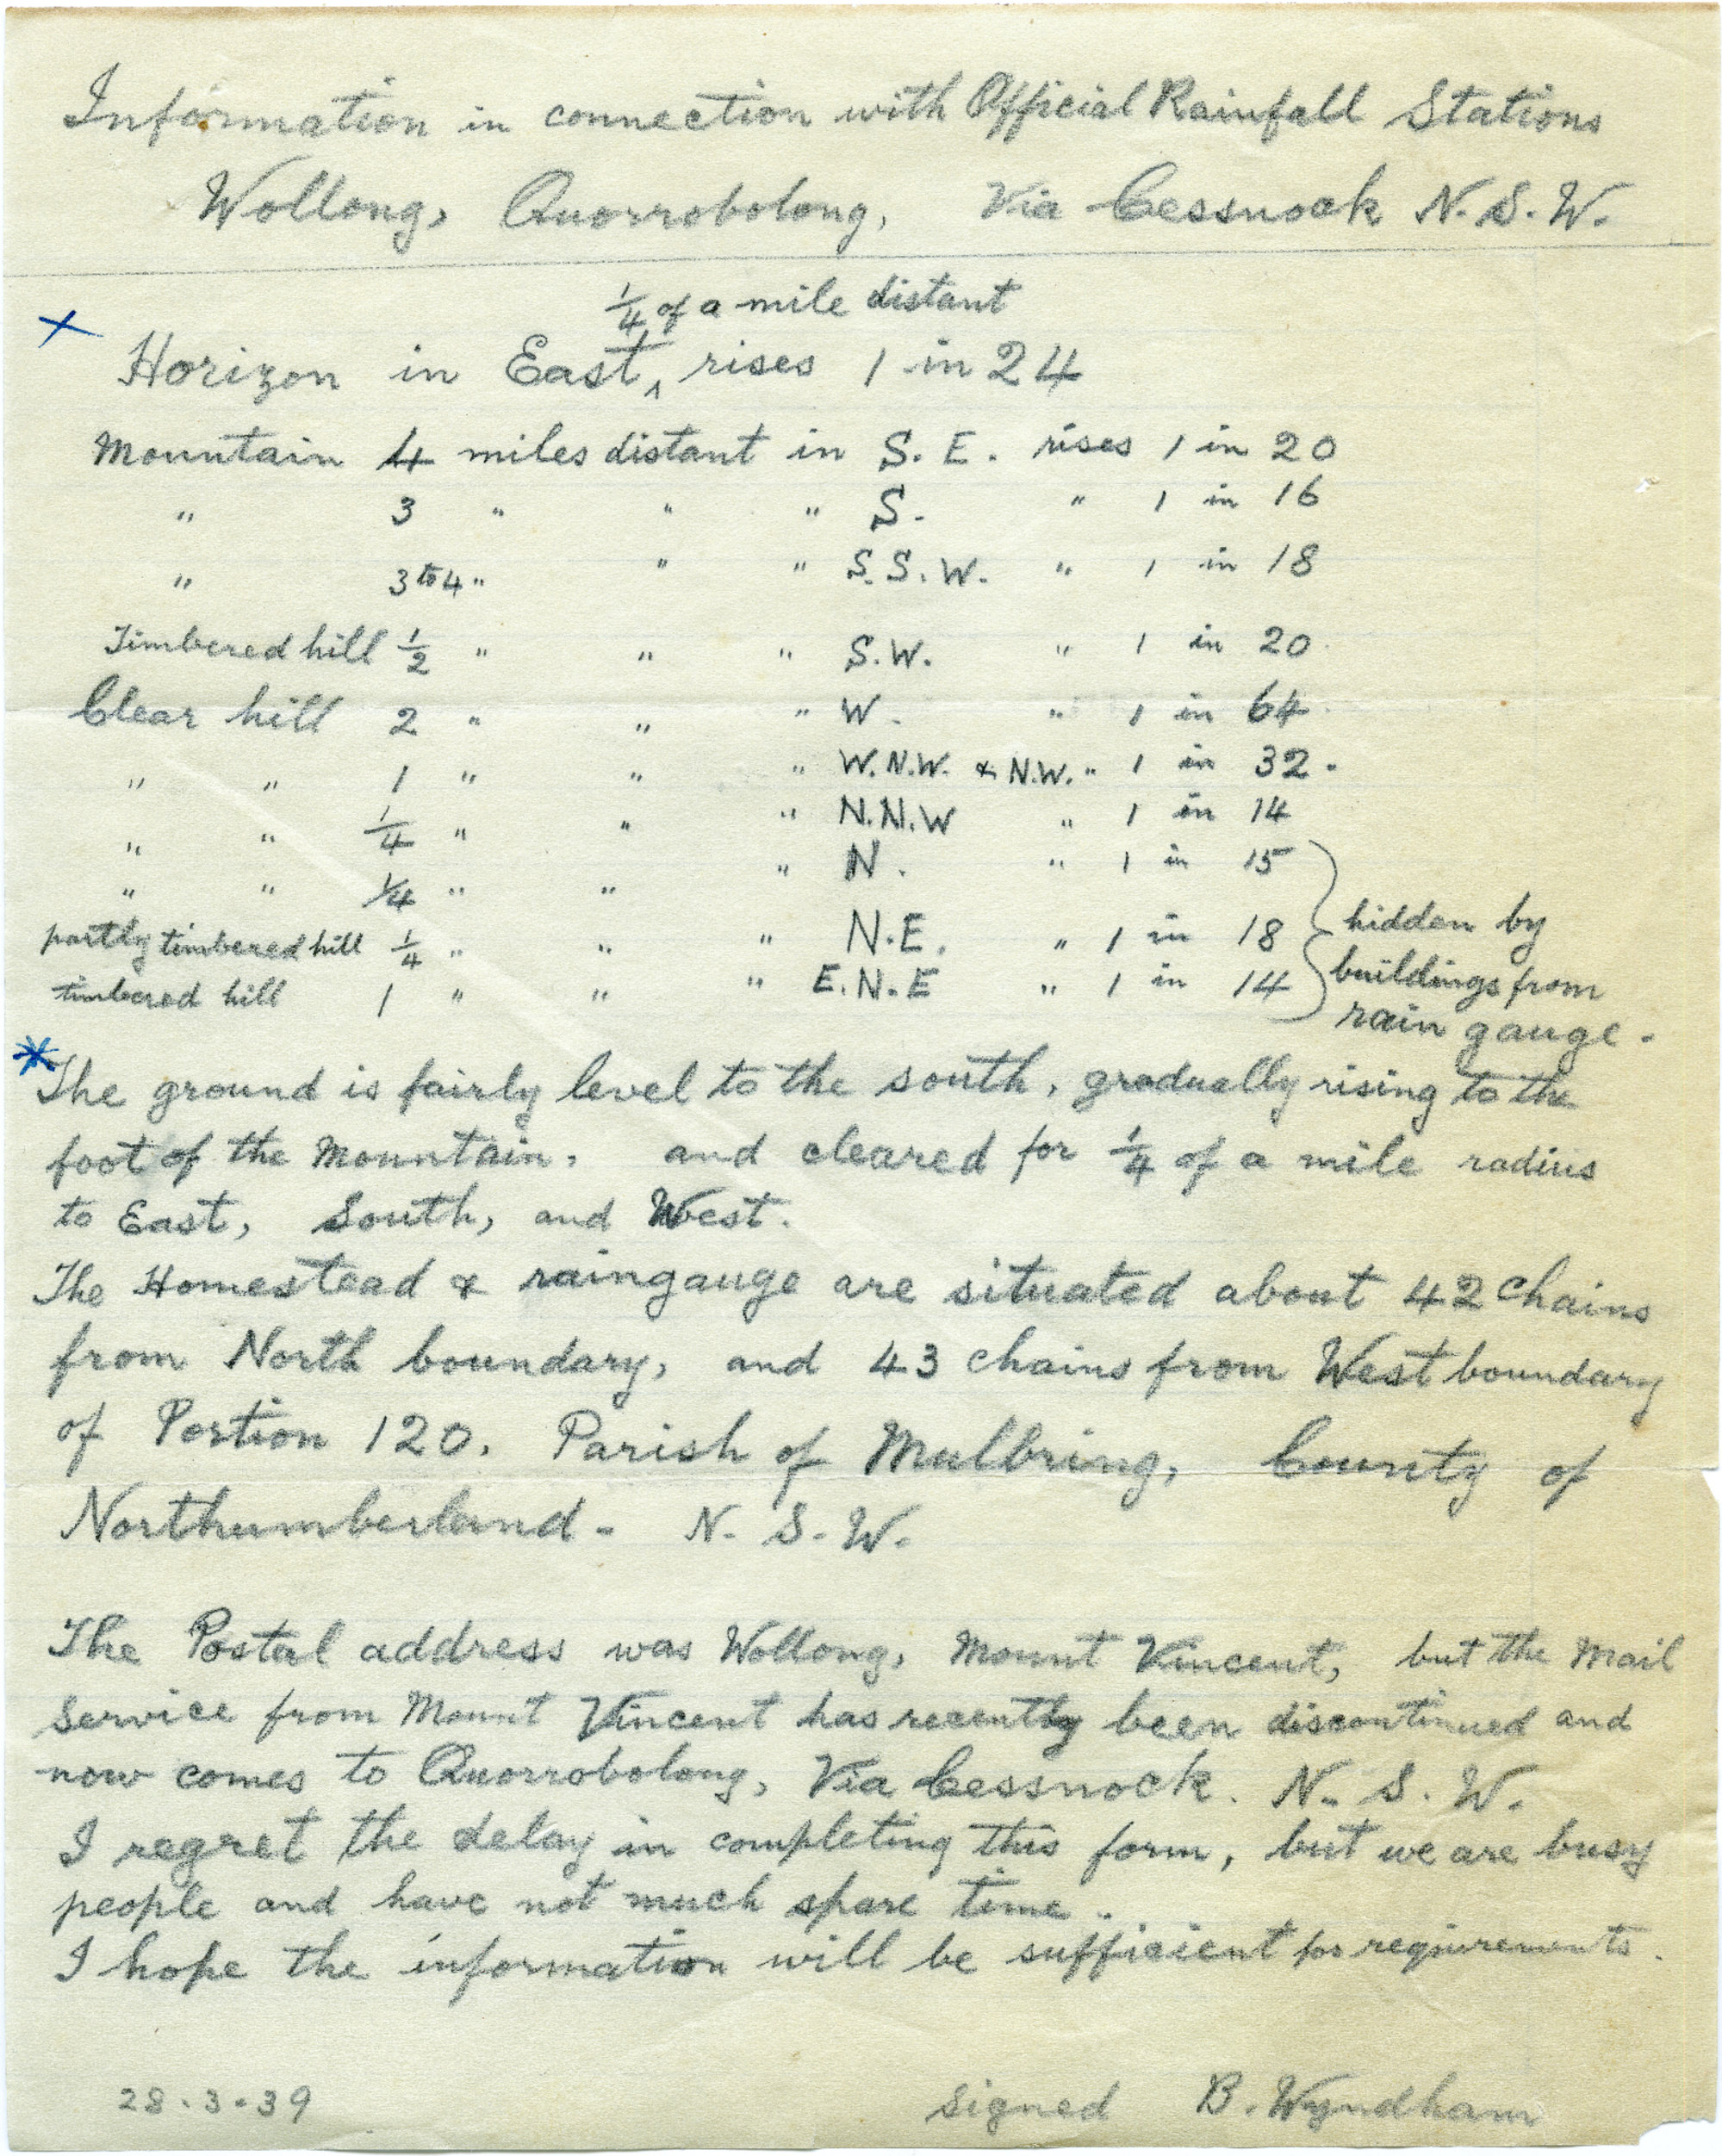 Information in connection with Official Rainfall Stations
Wollong, Quorrobolong, Via Cessnock N.S.W.
1/4 of a mile distant
x
Horizon in East, ^ rises 1 in 24
Mountain 4 miles distant in S.E. rises 1 in 20
" 3 " " " S. " 1 in 16
" 3 to 4 " " " S.S.W. " 1 in 18
Timbered hill 1/2 " " " S.W. " 1 in 20
Clear hill 2 " " " W. " 1 in 64
" " 1 " " " W.N.W. & N.W. " 1 in 32.
" " 1/4 " " " N.N.W " 1 in 14
" " 1/4 " " " N. " 1 in 15
partly timbered hill 1/4 " " " N.E. " 1 in 18
timbered hill 1 " " " E.N.E " 1 in 14
hidden by
buildings from
rain gauge.
* The ground is fairly level to the south, gradually rising to the
foot of the Mountain, and cleared for 1/4 of a mile radius
to East, South, and West.
The Homestead & raingauge are situated about 42 chains
from North boundary, and 43 chains from West boundary
of Portion 120. Parish of Mulbring, County of
Northumberland - N.S.W.
The Postal address was Wollong, Mount Vincent, but the Mail
Service from Mount Vincent has recently been discontinued and
now comes to Quorrobolong, Via Cessnock. N.S.W.
I regret the delay in completing this form, but we are busy
people and have not much spare time.
I hope the information will be sufficient for requirements.
28.3.39 signed B. Wyndham